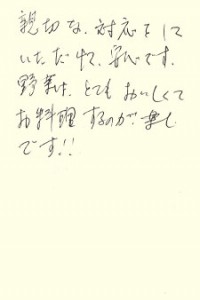 親切な、対応をして
いただけて、安心です。
野菜は、とても おいしくて
お料理するのが、楽し
です!!